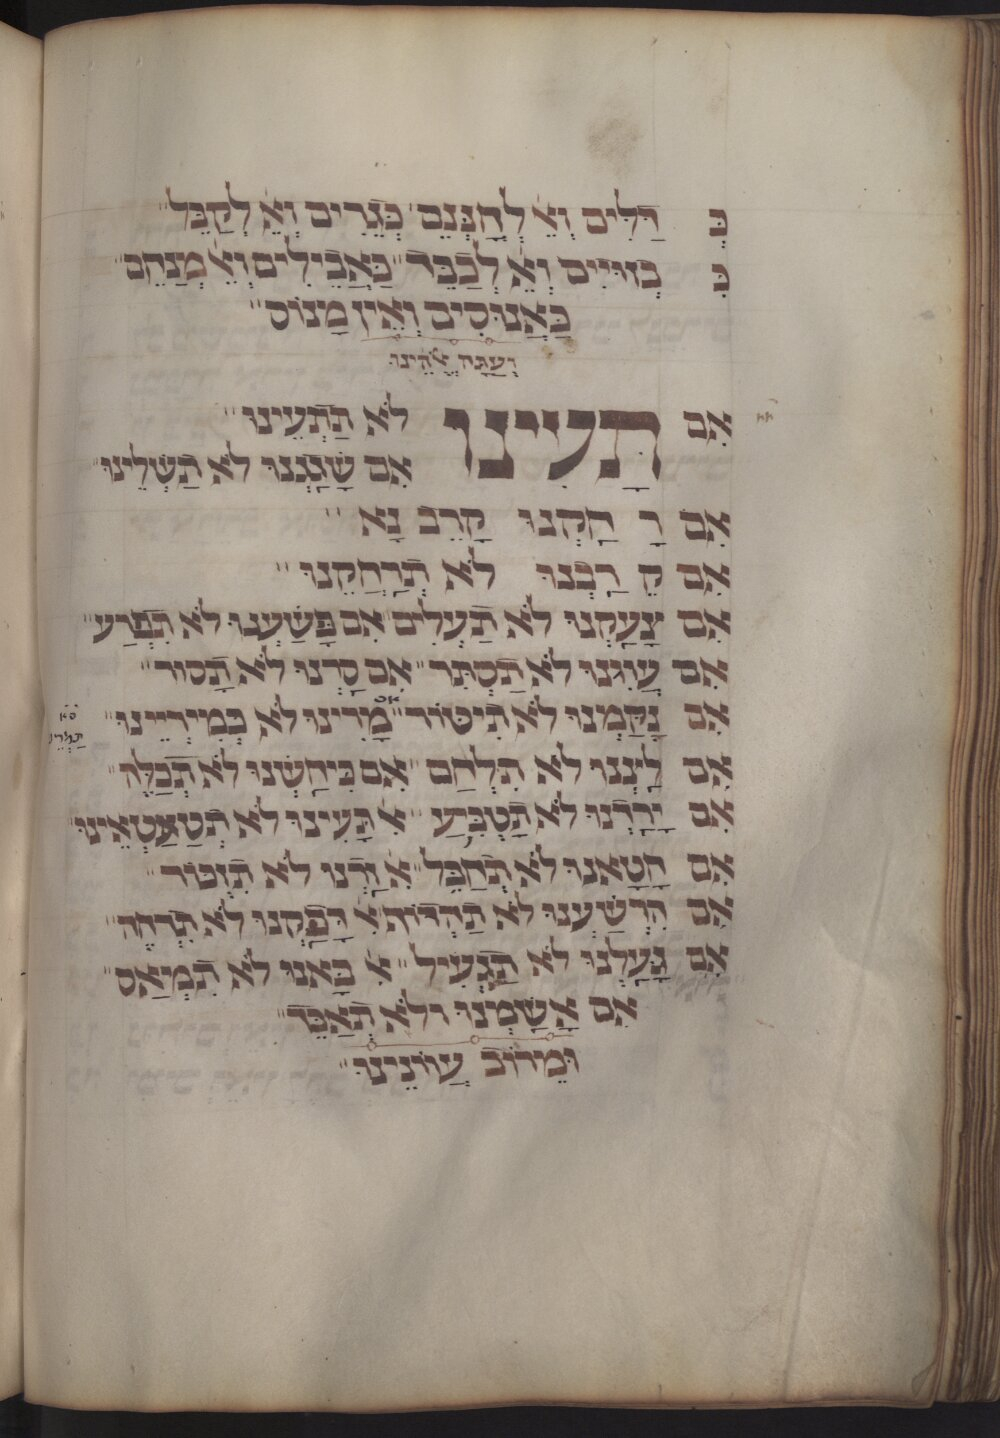 כְּ דַלִּים וְאֵ לְחָנְּנֵם כְּגֵרִים וְאֵ לְקַבֵּל
כְּ בְזוּיִים וְאֵ לְכַבֵּד כַּאֲבֵילִים וְאֵ מְנַחֵם
כַּאֲנוּסִים וְאֵין מָנוֹס
וְעַתָּה אֱלֹהֵינוּ
אִם תָעִינוּ לֹא תַתְעֵינוּ
אִם שָׁגַגְנוּ לֹא תַשְׁלֵינוּ
אִם רָחַקְנוּ קָרֵב נָא
אִם קָרַבְנוּ לֹא תְרַחֲקֵנוּ
אִם צָעַקְנוּ לֹא תַעְלִים אִם פָּשַׁעְנוּ לֹא תִפְרַע
אִם עָוִגְנוּ לֹא תַסְתֵּר אִם סַרְנוּ לֹא תָסוּר
אִם נָקַמְנוּ לֹא תִיטּוֹר אִם מָרִינוּ לֹא כְמִירְיֵינוּ
תַמְרֵי
אִם לַנְנוּ לֹא תִלְחַם אִם כִּיחַשְׁנוּ לֹא תְכַלֶּה
אִם יָרַדְנוּ לֹא תַטְבִּיעַ אִ תָּעִינוּ לֹא תְטַאטְאֵינוּ
אִם חָטָאנוּ לֹא תְחַבֵּל אִ זַדְנוּ לֹא תִזְכּוֹר
אִם הִרְשַׁעְנוּ לֹא תַהְדּוֹף אִ דָּפַקְנוּ לֹא תִדְחֶה
אִם גָּעַלְנוּ לֹא תַגְעִיל אִ בָּאנוּ לֹא תִמְאַס
אִם אָשַׁמְנוּ לֹא תְאַבֵּד
וּמֵרוֹב עֲוֹנֵינוּ